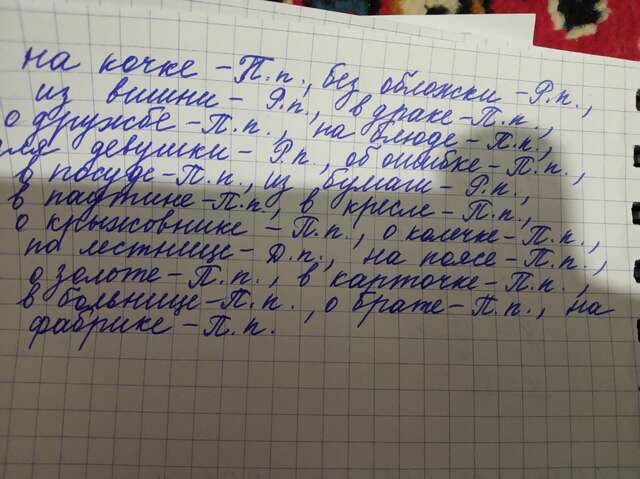 на кочке - П.п., без обложки - Р.п.,
из вишни - Р.п., в драке - П.п.,
о дружбе - П.п., на блюде - П.п.,
ля девушки - Р.п., об ошибке - П.п.,
в посуде - П.п., из бумаги - Р.п.,
в паутине - П.п., в кресле - П.п.,
о крыжовнике - П.п., о колечке - П.п.,
по лестнице - Д.п., на поясе - П.п.,
о золоте - П.п., в карточке - П.п.,
в больнице - П.п., о брате - П.п., на
фабрике - П.п.